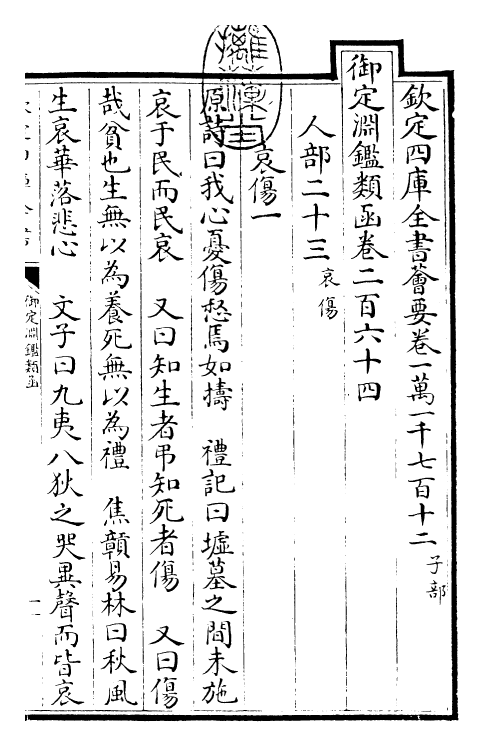 欽定四庫全書薈要卷一萬一千七百十二 子部
御定淵鑑類函卷二百六十四
人部二十三 哀傷
哀傷一
原詩曰我心憂傷惄焉如擣 禮記曰墟墓之間未施
哀于民而民哀 又曰知生者弔知死者傷 又曰傷
哉貧也生無以為養死無以為禮 焦贛易林曰秋風
生哀華落悲心 文子曰九夷八狄之哭異聲而皆哀
御定淵鑑類函
一